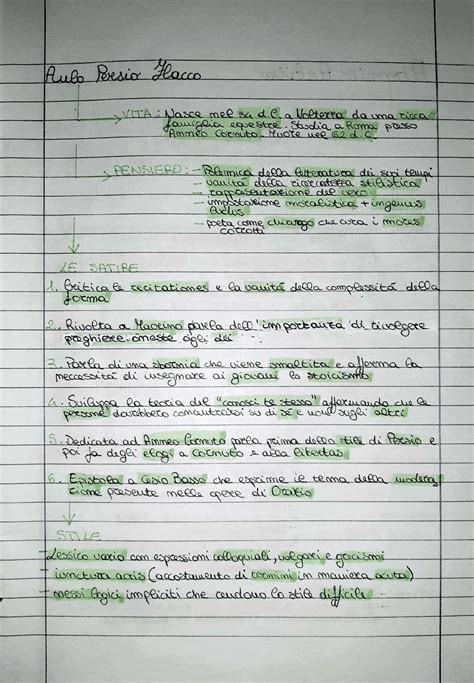 Aulo Persio Flacco
VITA: Nasce nel 34 d.C. a Volterra da una ricca
famiglia equestre. Studia a Roma presso
Anneo Cornuto. Muore nel 62 d.C.
PENSIERO: - Polemica della letteratura dei suoi tempi
- vanità della ricercatezza stilistica
- rappresentazione del vero
- impostazione moralistica + ingenuus
- poeta come chirurgo che cura i mores
corrotti
LE SATIRE
1. Critica le recitationes e la vanità della complessità della
forma
2. Rivolta a Macrino parla dell'importanza di rivolgere
preghiere oneste agli dei
3. Parla di una sbornia che viene smaltita e afferma la
necessità di insegnare ai giovani lo stoicismo
4. Sviluppa la teoria del "conosci te stesso" affermando che le
persone dovrebbero concentrarsi su di sé e non sugli altri
5. Dedicata ad Anneo Cornuto parla prima dello stile di Persio e
poi fa degli elogi a Cornuto e alla libertas
6. Epistola a Cesio Basso che esprime il tema della modera
zione presente nelle opere di Orazio
STILE
- Lessico vario con espressioni colloquiali, volgari e grecismi
- iunctura acris (accostamento di termini in maniera acuta)
- nessi logici impliciti che rendono lo stile difficile